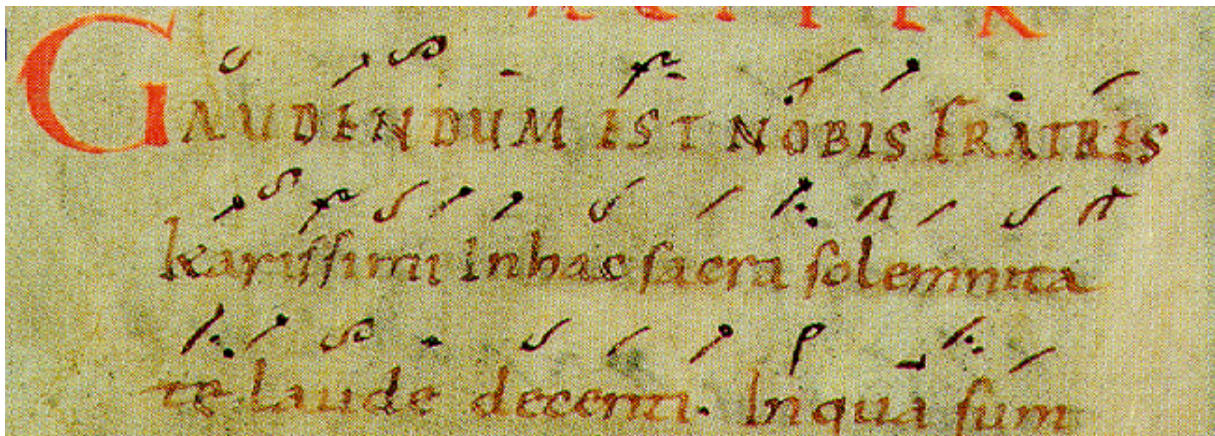 GAUDENDUM EST NOBIS FRATRES
karissimi in hac sacra solemnita
te laude decenti. In qua sum